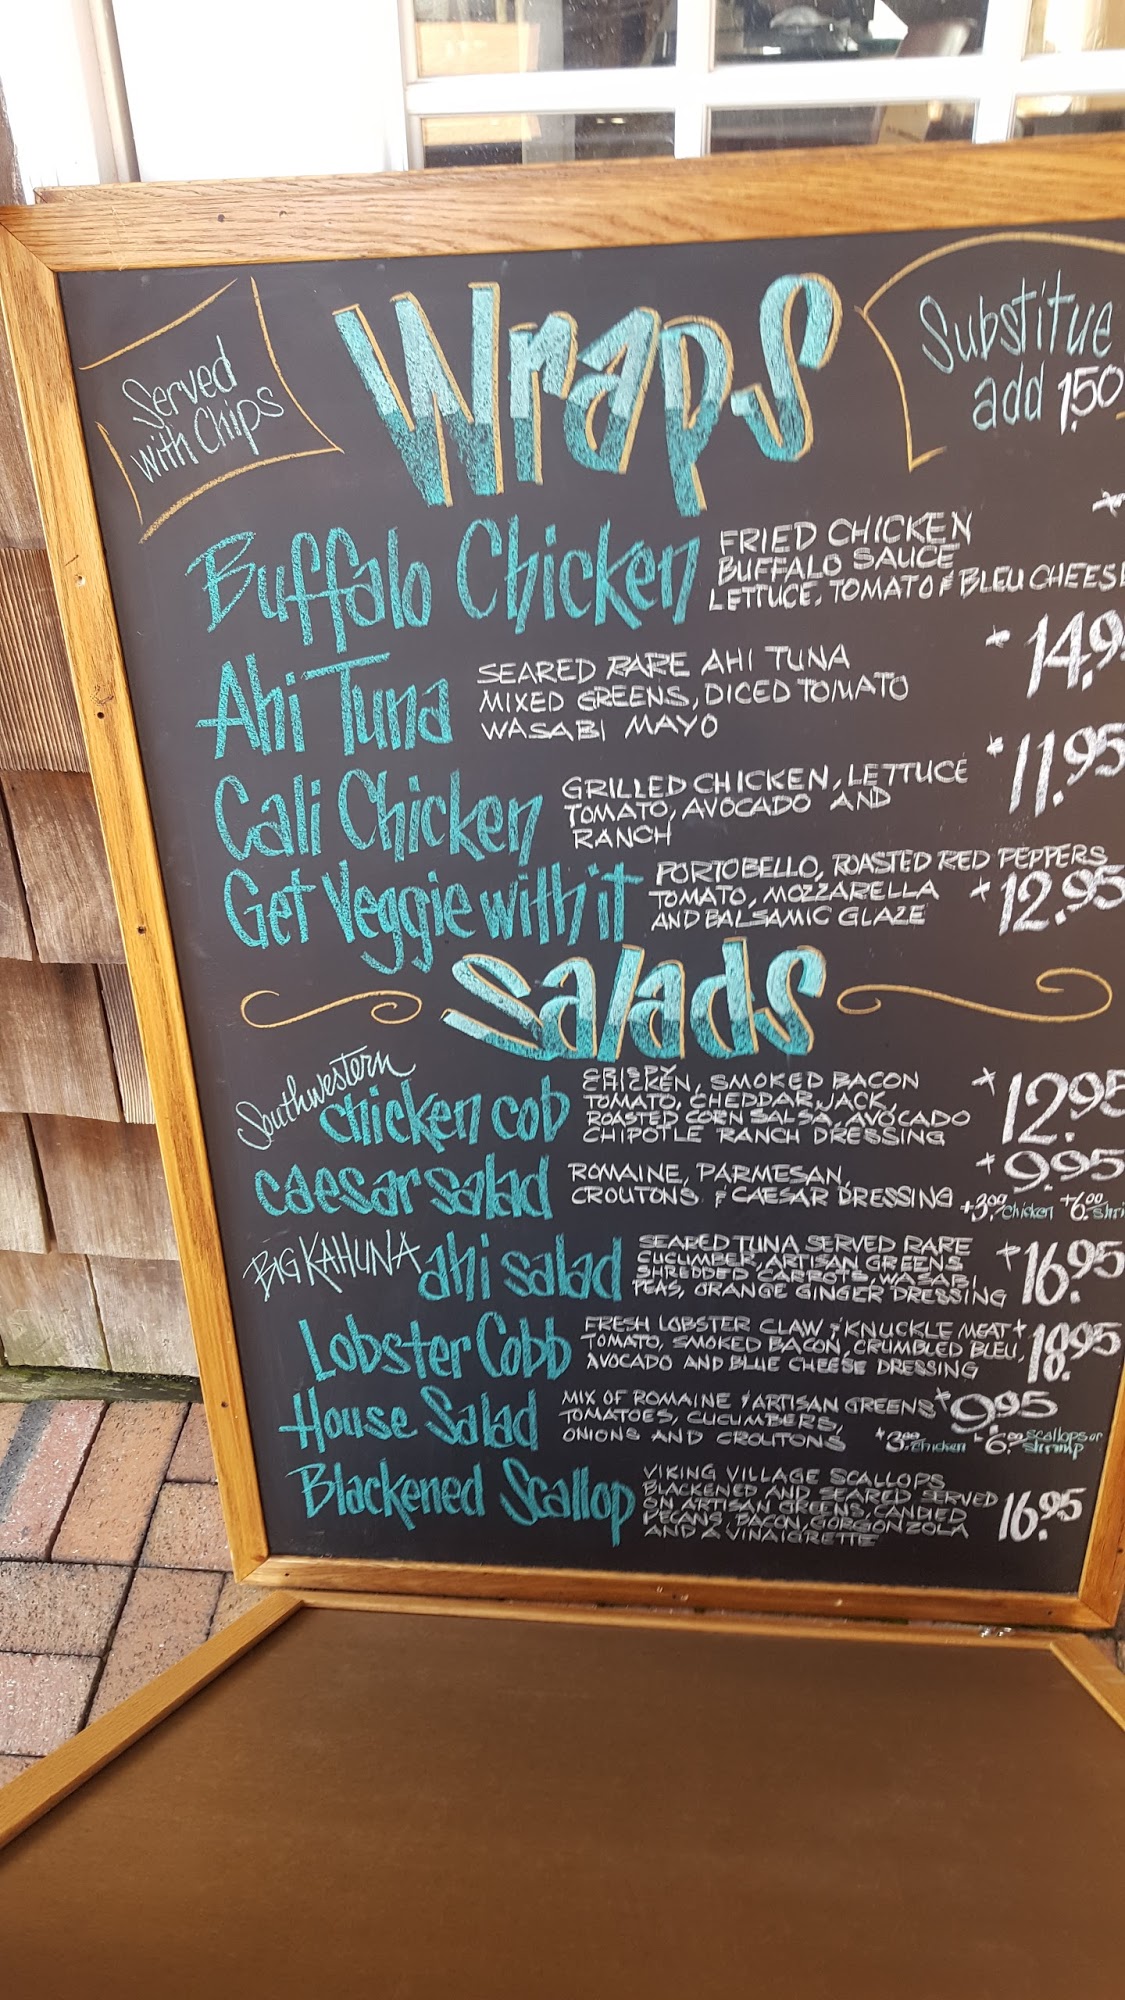 Served
with Chips
Wraps
Substitue
add 1.50
Buffalo Chicken
FRIED CHICKEN
BUFFALO SAUCE
LETTUCE, TOMATO & BLEU CHEESE
Ahi Tuna
SEARED RARE AHI TUNA
MIXED GREENS, DICED TOMATO
WASABI MAYO
14.9
Cali Chicken
GRILLED CHICKEN, LETTUCE
TOMATO, AVOCADO AND
RANCH
11.95
Get Veggie with it
PORTOBELLO, ROASTED RED PEPPERS
TOMATO, MOZZARELLA
AND BALSAMIC GLAZE
12.95
Salads
Southwestern
chicken cob
CRISPY
CHICKEN, SMOKED BACON
TOMATO, CHEDDAR JACK,
ROASTED CORN SALSA, AVOCADO
CHIPOTLE RANCH DRESSING
12.95
caesar salad
ROMAINE, PARMESAN,
CROUTONS & CAESAR DRESSING
9.95
+3.00 chicken +6.00 shri
BIG KAHUNA ahi salad
SEARED TUNA SERVED RARE
CUCUMBER, ARTISAN GREENS
SHREDDED CARROTS, WASABI
PEAS, ORANGE GINGER DRESSING
16.95
Lobster Cobb
FRESH LOBSTER CLAW & KNUCKLE MEAT
TOMATO, SMOKED BACON, CRUMBLED BLEU,
AVOCADO AND BLUE CHEESE DRESSING
18.95
House Salad
MIX OF ROMAINE & ARTISAN GREENS
TOMATOES, CUCUMBERS,
ONIONS AND CROUTONS
9.95
+3.00 chicken +6.00 scallops or
shrimp
Blackened Scallop
VIKING VILLAGE SCALLOPS
BLACKENED AND SEARED SERVED
ON ARTISAN GREENS, CANDIED
PECANS, BACON, GORGONZOLA
AND A VINAIGRETTE
16.95